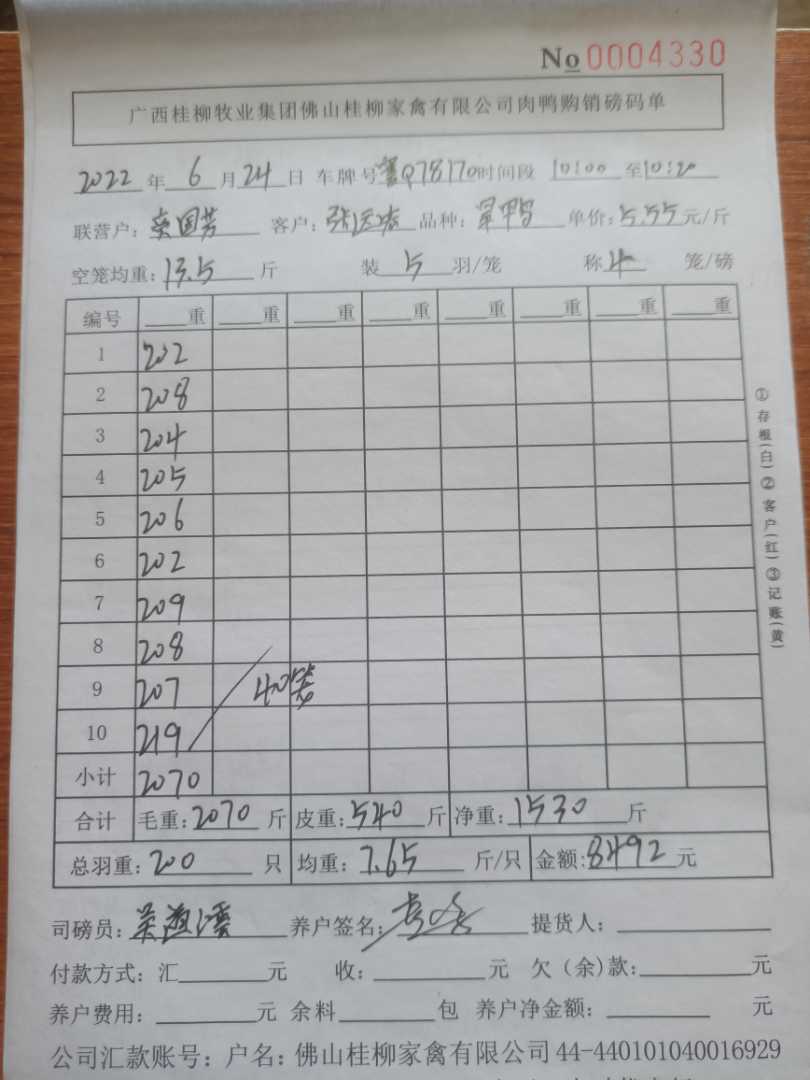 No 0004330
广西桂柳牧业集团佛山桂柳家禽有限公司肉鸭购销磅码单
2022年6月24日 车牌号粤Q78170时间段 10:00至10:20
联营户: 国芳 客户: 张 品种: 鸭 单价:5.55元/斤
空笼均重:13.5斤 装5羽/笼 称4笼/磅
编号 重 重 重 重 重 重 重 重
1 202
2 208
3 204
4 205
5 206
6 202
7 209
8 208
9 207 40笼
10 219
小计 2070
合计 毛重:2070斤 皮重:540斤 净重:1530斤
总羽重:200只 均重:7.65斤/只 金额:8492元
司磅员: 养户签名: 提货人:
付款方式: 汇元 收:元 欠(余)款:元
养户费用:元 余料包 养户净金额:元
公司汇款账号: 户名: 佛山桂柳家禽有限公司 44-440101040016929
①存根(白)②客户(红)③记账(黄)